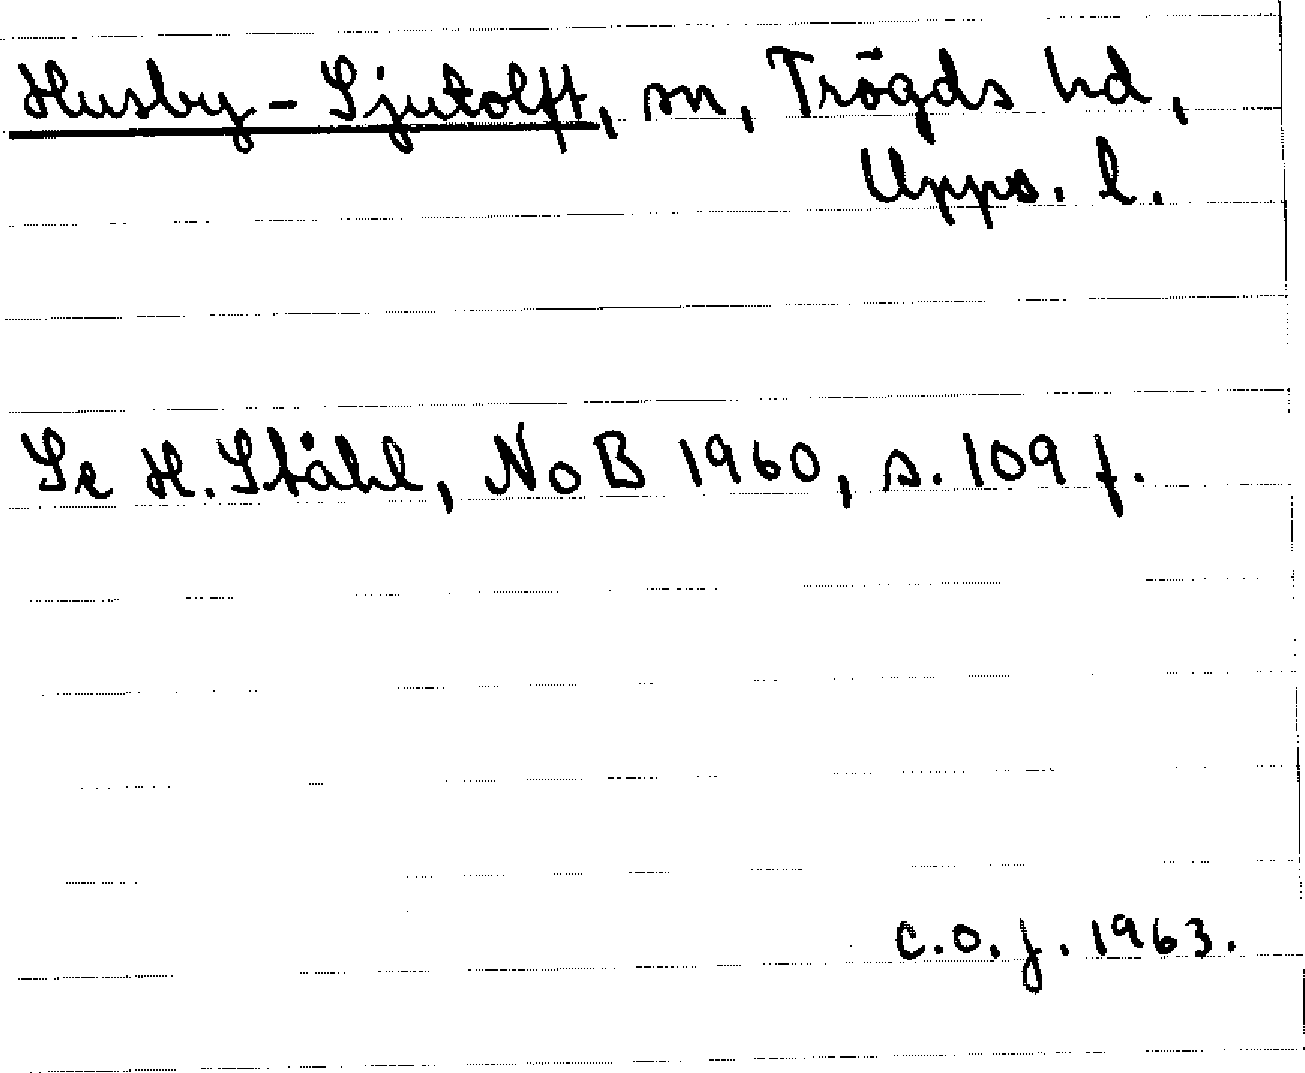 Husby-Sjutolft, sn, Trögds hd,
Upps. l.
Se H. Ståhl, NoB 1960, s. 109 f.
c.o.j. 1963.